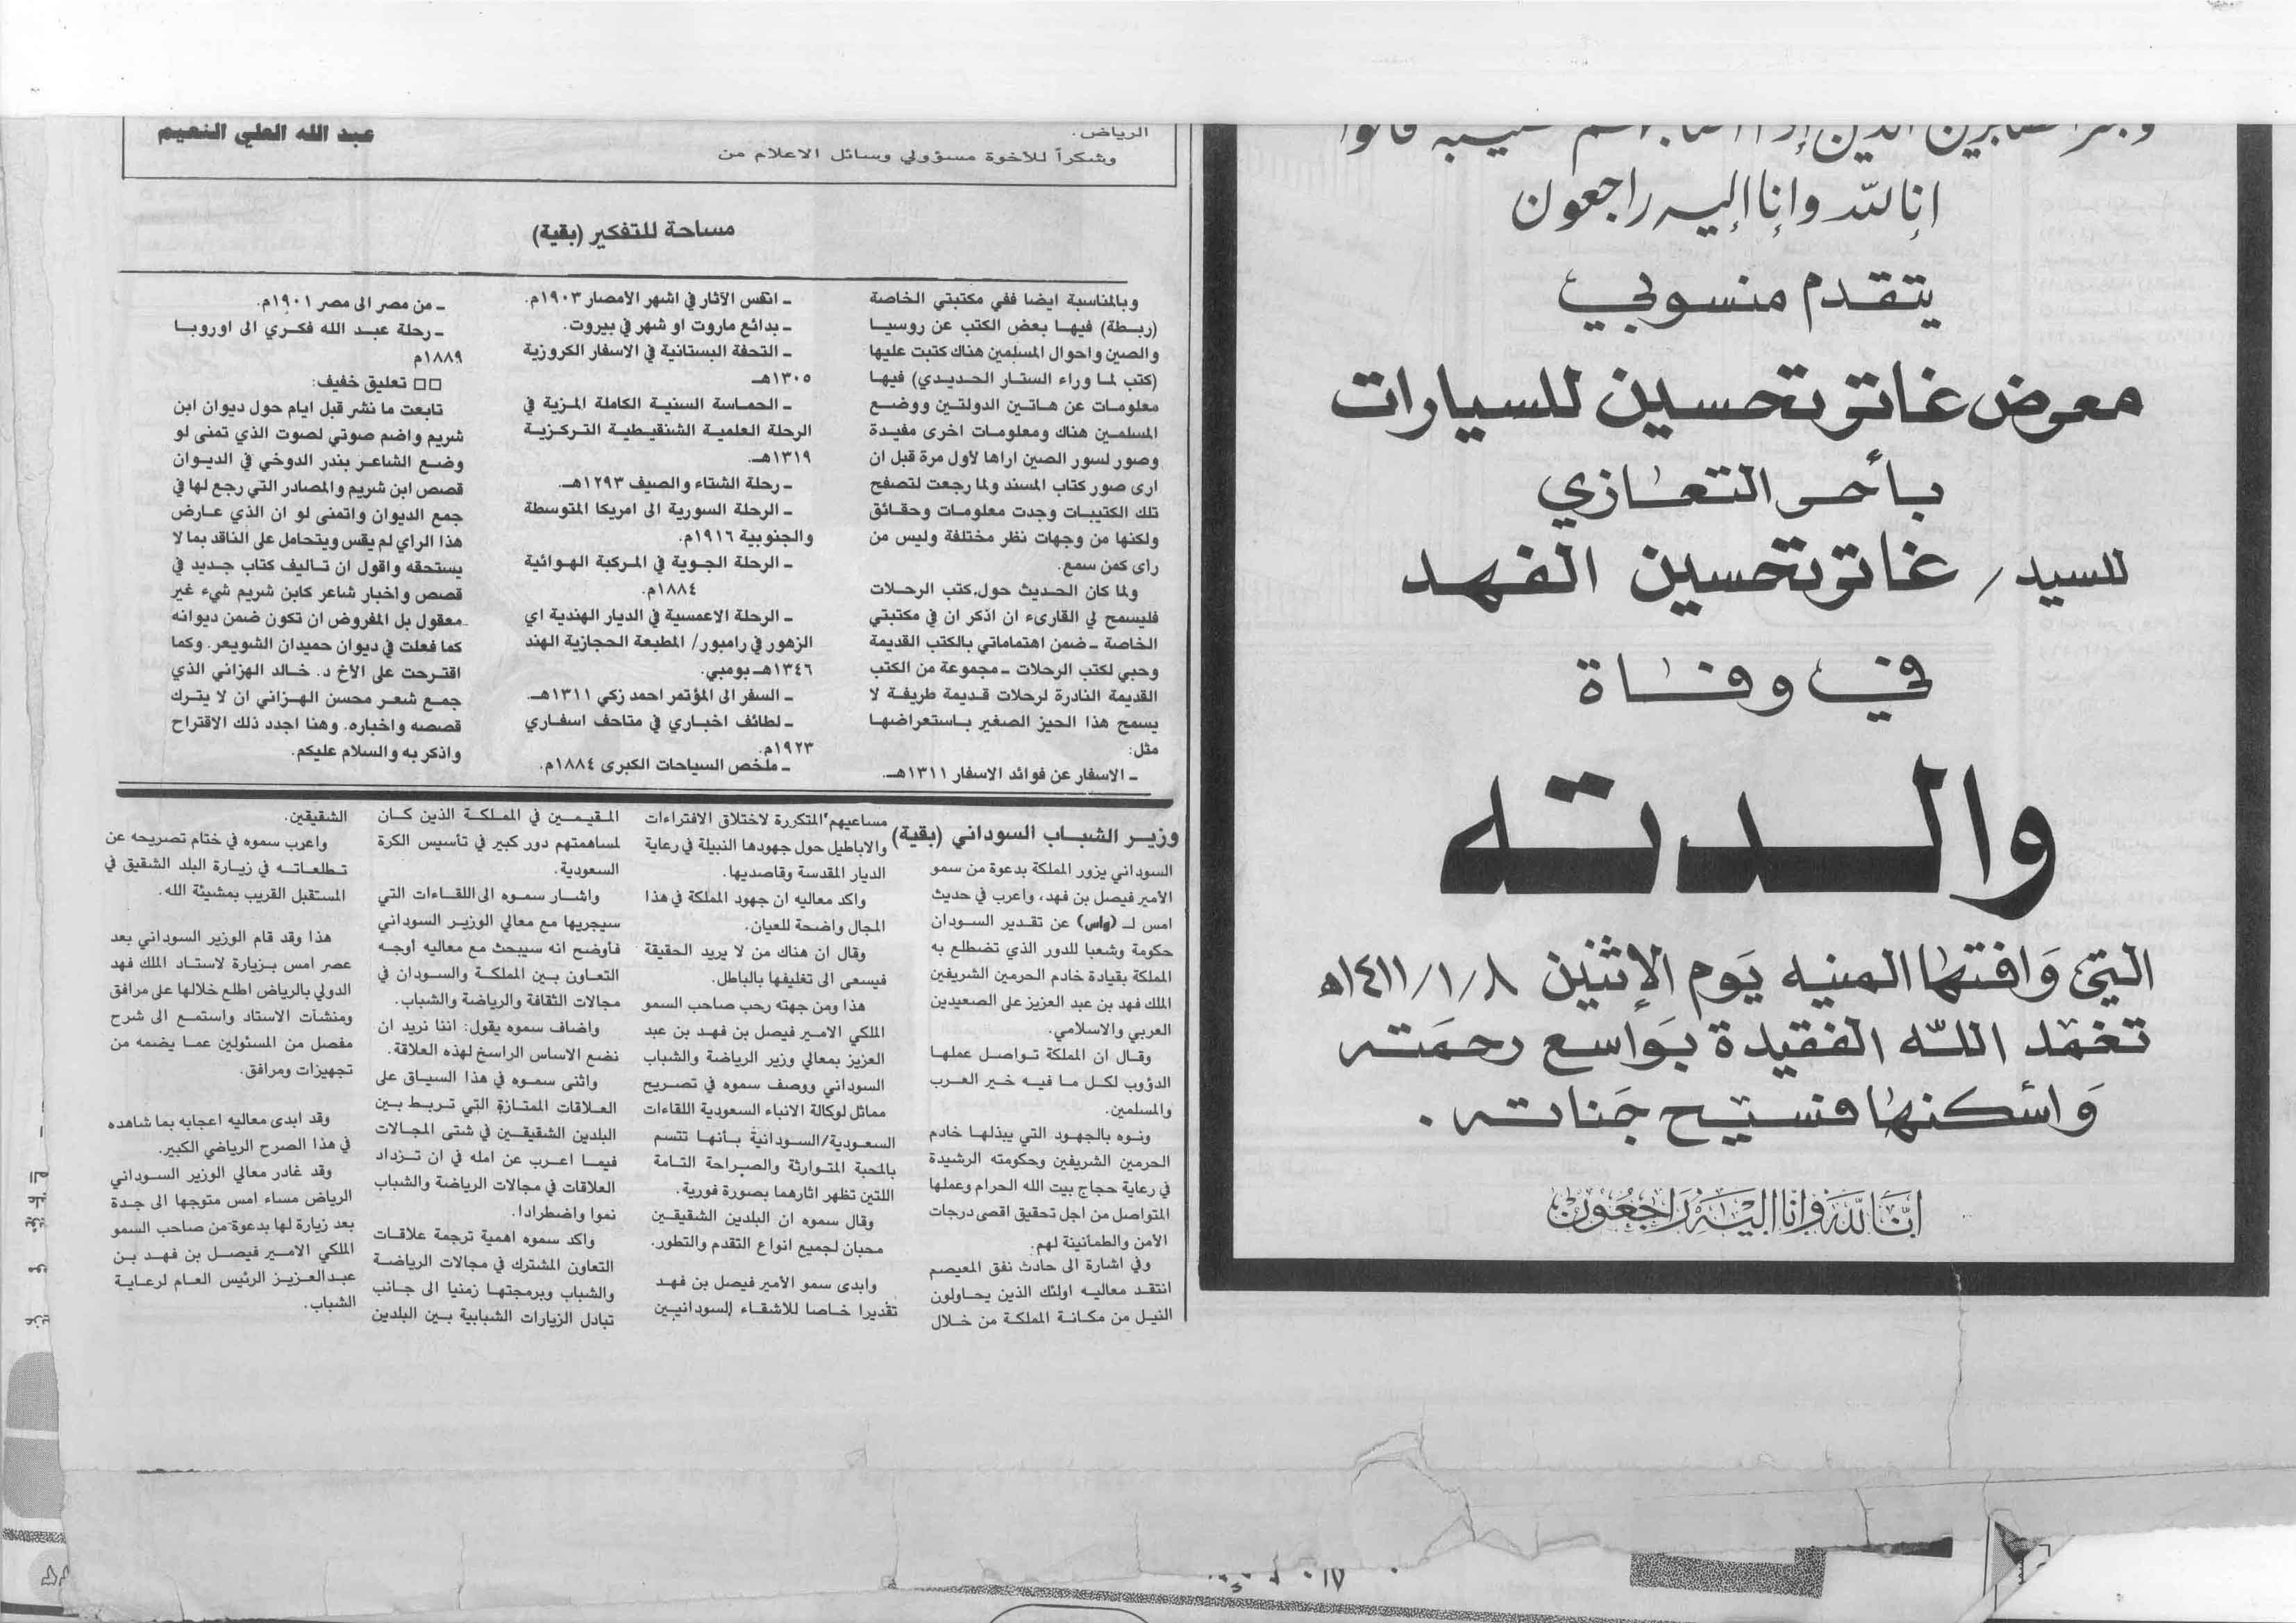 انا لله وانا إليه راجعون
يتقدم منسوبي
معرض غاتم تحسين للسيارات
بأحر التعازي
للسيد / غاتم تحسين الفهد
في وفاة
والدته
التي وافتها المنيه يوم الإثنين ١٤١١/١/٨ه
تغمد الله الفقيدة بواسع رحمته
وأسكنها فسيح جناته .
انا لله وانا اليه راجعون
الرياض.
وشكراً للأخوة مسؤولي وسائل الاعلام من
عبد الله العلي النعيم
مساحة للتفكير (بقية)
وبالمناسبة ايضا ففي مكتبتي الخاصة
(ربطة) فيها بعض الكتب عن روسيا
والصين واحوال المسلمين هناك كتبت عليها
(كتب لما وراء الستار الحديدي) فيها
معلومات عن هاتين الدولتين ووضع
المسلمين هناك ومعلومات اخرى مفيدة
وصور لسور الصين اراها لأول مرة قبل ان
ارى صور كتاب المسند ولما رجعت لتصفح
تلك الكتيبات وجدت معلومات وحقائق
ولكنها من وجهات نظر مختلفة وليس من
راى كمن سمع.
ولما كان الحديث حول كتب الرحلات
فليسمح لي القارىء ان اذكر ان في مكتبتي
الخاصة ـ ضمن اهتماماتي بالكتب القديمة
وحبي لكتب الرحلات ـ مجموعة من الكتب
القديمة النادرة لرحلات قديمة طريفة لا
يسمح هذا الحيز الصغير باستعراضها
مثل:
ـ الاسفار عن فوائد الاسفار ١٣١١هـ.
ـ انفس الآثار في اشهر الأمصار ١٩٠٣م.
ـ بدائع ماروت او شهر في بيروت.
ـ التحفة البستانية في الاسفار الكروزية
١٣٠٥هـ
ـ الحماسة السنية الكاملة المزية في
الرحلة العلمية الشنقيطية التركزية
١٣١٩هـ.
ـ رحلة الشتاء والصيف ١٢٩٣هـ.
ـ الرحلة السورية الى امريكا المتوسطة
والجنوبية ١٩١٦م.
ـ الرحلة الجوية في المركبة الهوائية
١٨٨٤م.
ـ الرحلة الاعمسية في الديار الهندية اي
الزهور في رامبور/ المطبعة الحجازية الهند
١٣٤٦هـ بومبي.
ـ السفر الى المؤتمر احمد زكي ١٣١١هـ.
ـ لطائف اخباري في متاحف اسفاري
١٩٢٣م.
ـ ملخص السياحات الكبرى ١٨٨٤م.
ـ من مصر الى مصر ١٩٠١م.
ـ رحلة عبد الله فكري الى اوروبا
١٨٨٩م
□□ تعليق خفيف:
تابعت ما نشر قبل ايام حول ديوان ابن
شريم واضم صوتي لصوت الذي تمنى لو
وضع الشاعر بندر الدوخي في الديوان
قصص ابن شريم والمصادر التي رجع لها في
جمع الديوان واتمنى لو ان الذي عارض
هذا الراي لم يقس ويتحامل على الناقد بما لا
يستحقه واقول ان تاليف كتاب جديد في
قصص واخبار شاعر كابن شريم شيء غير
معقول بل المفروض ان تكون ضمن ديوانه
كما فعلت في ديوان حميدان الشويعر. وكما
اقترحت على الأخ د. خالد الهزاني الذي
جمع شعر محسن الهزاني ان لا يترك
قصصه واخباره. وهنا اجدد ذلك الاقتراح
واذكر به والسلام عليكم.
وزير الشباب السوداني (بقية)
السوداني يزور المملكة بدعوة من سمو
الأمير فيصل بن فهد، واعرب في حديث
امس لـ (واس) عن تقدير السودان
حكومة وشعبا للدور الذي تضطلع به
المملكة بقيادة خادم الحرمين الشريفين
الملك فهد بن عبد العزيز على الصعيدين
العربي والاسلامي.
وقال ان المملكة تواصل عملها
الدؤوب لكل ما فيه خير العرب
والمسلمين.
ونوه بالجهود التي يبذلها خادم
الحرمين الشريفين وحكومته الرشيدة
في رعاية حجاج بيت الله الحرام وعملها
المتواصل من اجل تحقيق اقصى درجات
الأمن والطمأنينة لهم.
وفي اشارة الى حادث نفق المعيصم
انتقد معاليه اولئك الذين يحاولون
النيل من مكانة المملكة من خلال
مساعيهم المتكررة لاختلاق الافتراءات
والاباطيل حول جهودها النبيلة في رعاية
الديار المقدسة وقاصديها.
واكد معاليه ان جهود المملكة في هذا
المجال واضحة للعيان.
وقال ان هناك من لا يريد الحقيقة
فيسعى الى تغليفها بالباطل.
هذا ومن جهته رحب صاحب السمو
الملكي الامير فيصل بن فهد بن عبد
العزيز بمعالي وزير الرياضة والشباب
السوداني ووصف سموه في تصريح
مماثل لوكالة الانباء السعودية اللقاءات
السعودية/السودانية بأنها تتسم
بالمحبة المتوارثة والصراحة التامة
اللتين تظهر اثارهما بصورة فورية.
وقال سموه ان البلدين الشقيقين
محبان لجميع انواع التقدم والتطور.
وابدى سمو الأمير فيصل بن فهد
تقديرا خاصا للأشقاء السودانيين
المقيمين في المملكة الذين كان
لمساهمتهم دور كبير في تأسيس الكرة
السعودية.
واشار سموه الى اللقاءات التي
سيجريها مع معالي الوزير السوداني
فأوضح انه سيبحث مع معاليه أوجه
التعاون بين المملكة والسودان في
مجالات الثقافة والرياضة والشباب.
واضاف سموه يقول: اننا نريد ان
نضع الاساس الراسخ لهذه العلاقة.
واثنى سموه في هذا السياق على
العلاقات الممتازة التي تربط بين
البلدين الشقيقين في شتى المجالات
فيما اعرب عن امله في ان تزداد
العلاقات في مجالات الرياضة والشباب
نموا واضطرادا.
واكد سموه اهمية ترجمة علاقات
التعاون المشترك في مجالات الرياضة
والشباب وبرمجتها زمنيا الى جانب
تبادل الزيارات الشبابية بين البلدين
الشقيقين.
واعرب سموه في ختام تصريحه عن
تطلعاته في زيارة البلد الشقيق في
المستقبل القريب بمشيئة الله.
هذا وقد قام الوزير السوداني بعد
عصر امس بزيارة لاستاد الملك فهد
الدولي بالرياض اطلع خلالها على مرافق
ومنشآت الاستاد واستمع الى شرح
مفصل من المسئولين عما يضمه من
تجهيزات ومرافق.
وقد ابدى معاليه اعجابه بما شاهده
في هذا الصرح الرياضي الكبير.
وقد غادر معالي الوزير السوداني
الرياض مساء امس متوجها الى جدة
بعد زيارة لها بدعوة من صاحب السمو
الملكي الامير فيصل بن فهد بن
عبدالعزيز الرئيس العام لرعاية
الشباب.